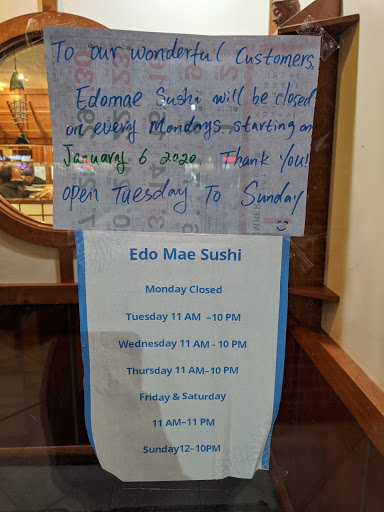 To our wonderful Customers,
Edomae Sushi will be closed
on every Mondays starting on
January 6 2020. Thank You!
open Tuesday To Sunday
Edo Mae Sushi
Monday Closed
Tuesday 11 AM –10 PM
Wednesday 11 AM - 10 PM
Thursday 11 AM–10 PM
Friday & Saturday
11 AM–11 PM
Sunday12–10PM